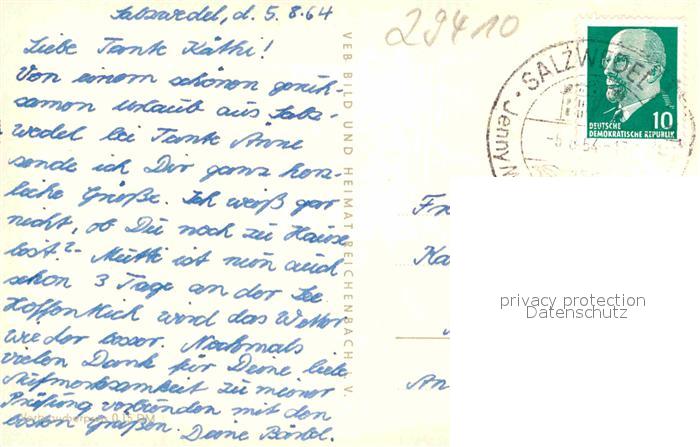 Salzwedel, d. 5.8.64
29410
Liebe Tante Käthi!
Von einem schönen geruh-
samen Urlaub aus Salz-
wedel bei Tante Änne
sende ich Dir ganz herz-
liche Grüße. Ich weiß gar
nicht, ob Du noch zu Hause
bist? - Mutti ist nun auch
schon 3 Tage an der See
Hoffentlich wird das Wetter
wieder besser. Nochmals
vielen Dank für Deine liebe
Aufmerksamkeit zu meiner
Prüfung verbunden mit den
besten Grüßen. Deine Bärbel.
VEB BILD UND HEIMAT REICHENBACH I. V.
SALZWEDEL
Jenny
10
DEUTSCHE
DEMOKRATISCHE REPUBLIK
Fr
Ka
An
privacy protection
Datenschutz